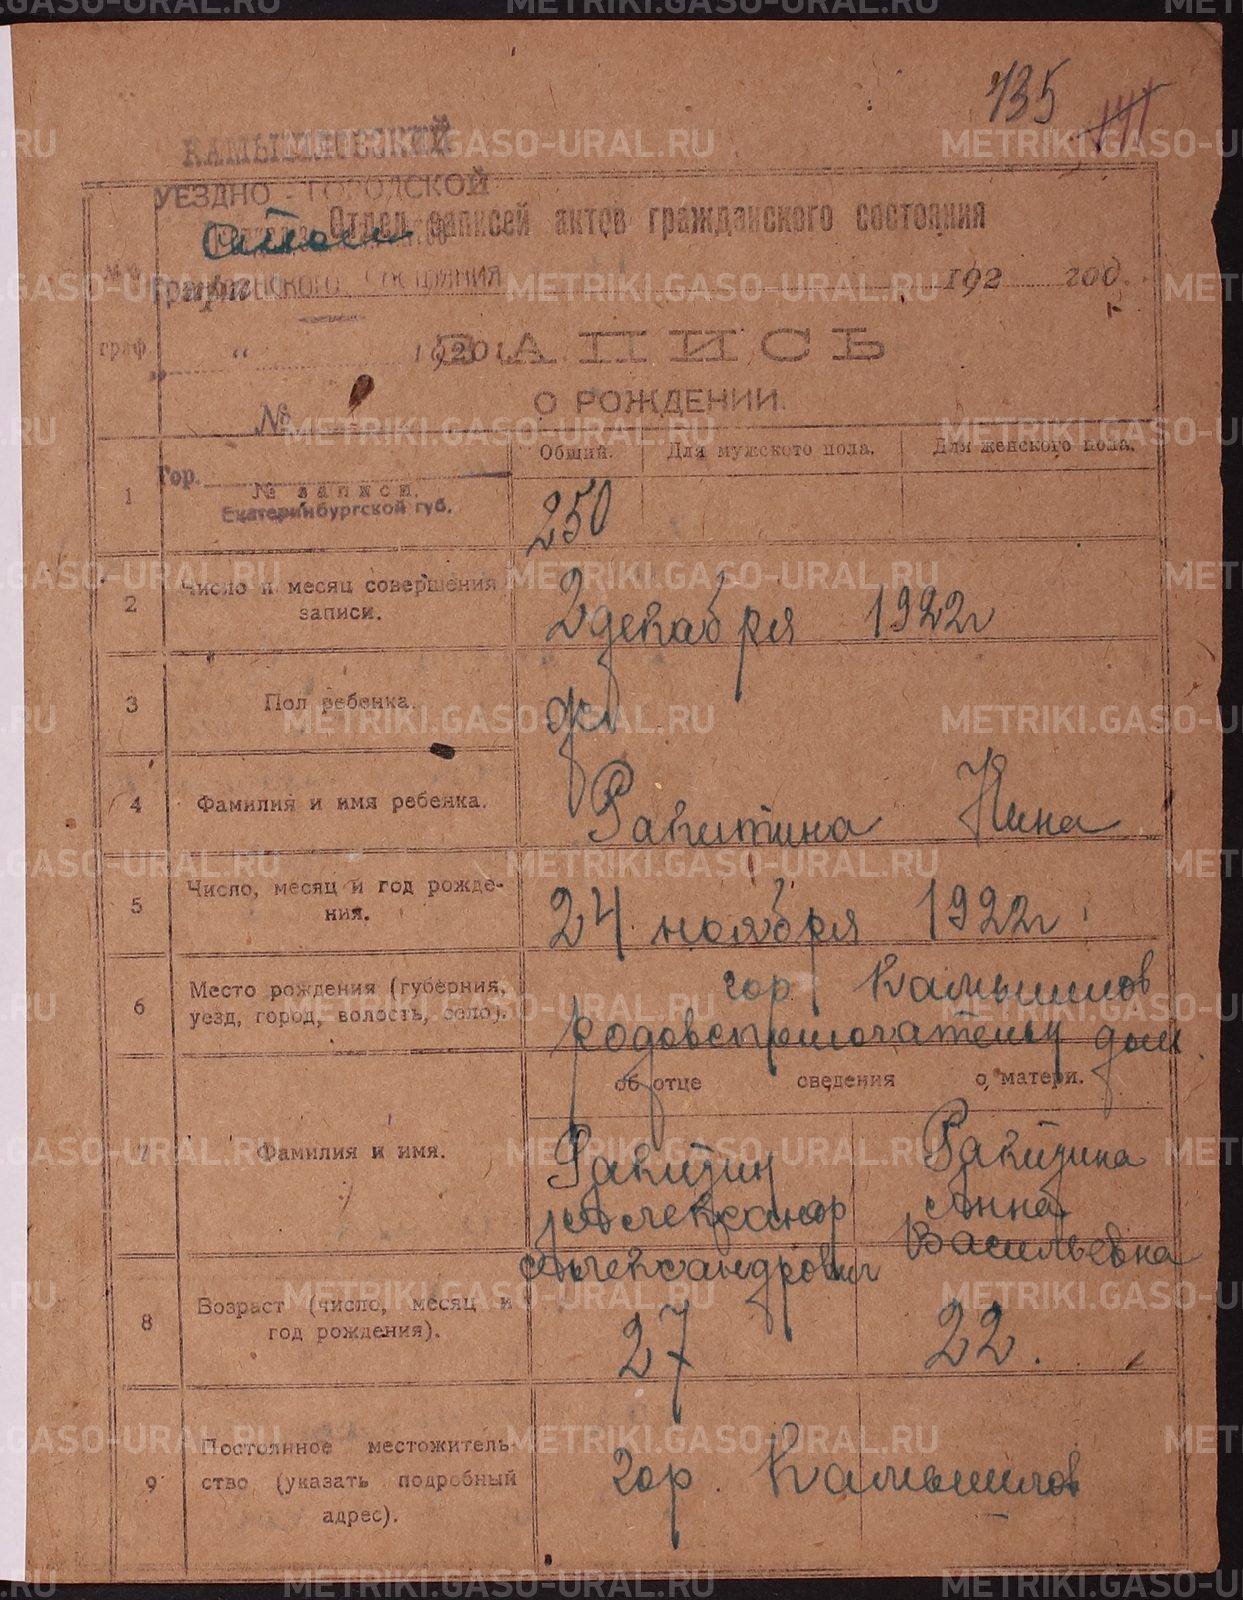 135
КАМЫШЛОВСКИЙ
УЕЗДНО - ГОРОДСКОЙ
Отдел записей актов гражданского состояния
гражданского состояния 192 год.
№№ граф.
" 1920 г.
ЗАПИСЬ
О РОЖДЕНИИ.
№
Общий. Для мужского пола. Для женского пола.
Гор.
1 № записи. 250
Екатеринбургской губ.
2 Число и месяц совершения записи. 2 декабря 1922 г
3 Пол ребенка. ж
4 Фамилия и имя ребенка. Ракитина Нина
5 Число, месяц и год рожде-
ния. 24 ноября 1922 г.
6 Место рождения (губерния,
уезд, город, волость, село). гор Камышлов
родовспомогательн дом.
об отце сведения о матери.
7 Фамилия и имя. Ракитин Ракитина
Александр Анна
Александрович Васильевна
8 Возраст (число, месяц и
год рождения). 27 22.
9 Постоянное местожитель-
ство (указать подробный
адрес). гор. Камышлов
METRIKI.GASO-URAL.RU